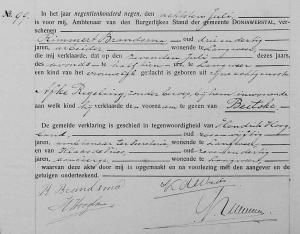 No. 99.
In het jaar negentienhonderd negen, den achtsten Juli,
is voor mij, Ambtenaar van den Burgerlijken Stand der gemeente DONIAWERSTAL, ver-
schenen
Rimmert Brandsma oud drieendertig
jaren, arbeider wonende te Langweer
die mij verklaarde, dat op den zevenden Juli dezes jaars,
des avonds te half tien ure, te Langweer
een kind van het vrouwelijk geslacht is geboren uit zijne echtgenoote
zonder beroep, bij hem inwonende
aan welk kind hij verklaarde den voornaam te geven van Beitske
De gemelde verklaring is geschied in tegenwoordigheid van Hendrik Hoog-
land, oud
jaren, ambtenaar ter secretarie, wonende te Langweer
en van oud
jaren, wonende te Langweer,
waarvan deze akte door mij is opgemaakt en na voorlezing met den aangever en de
getuigen onderteekend.
R Brandsma
H Hoogland